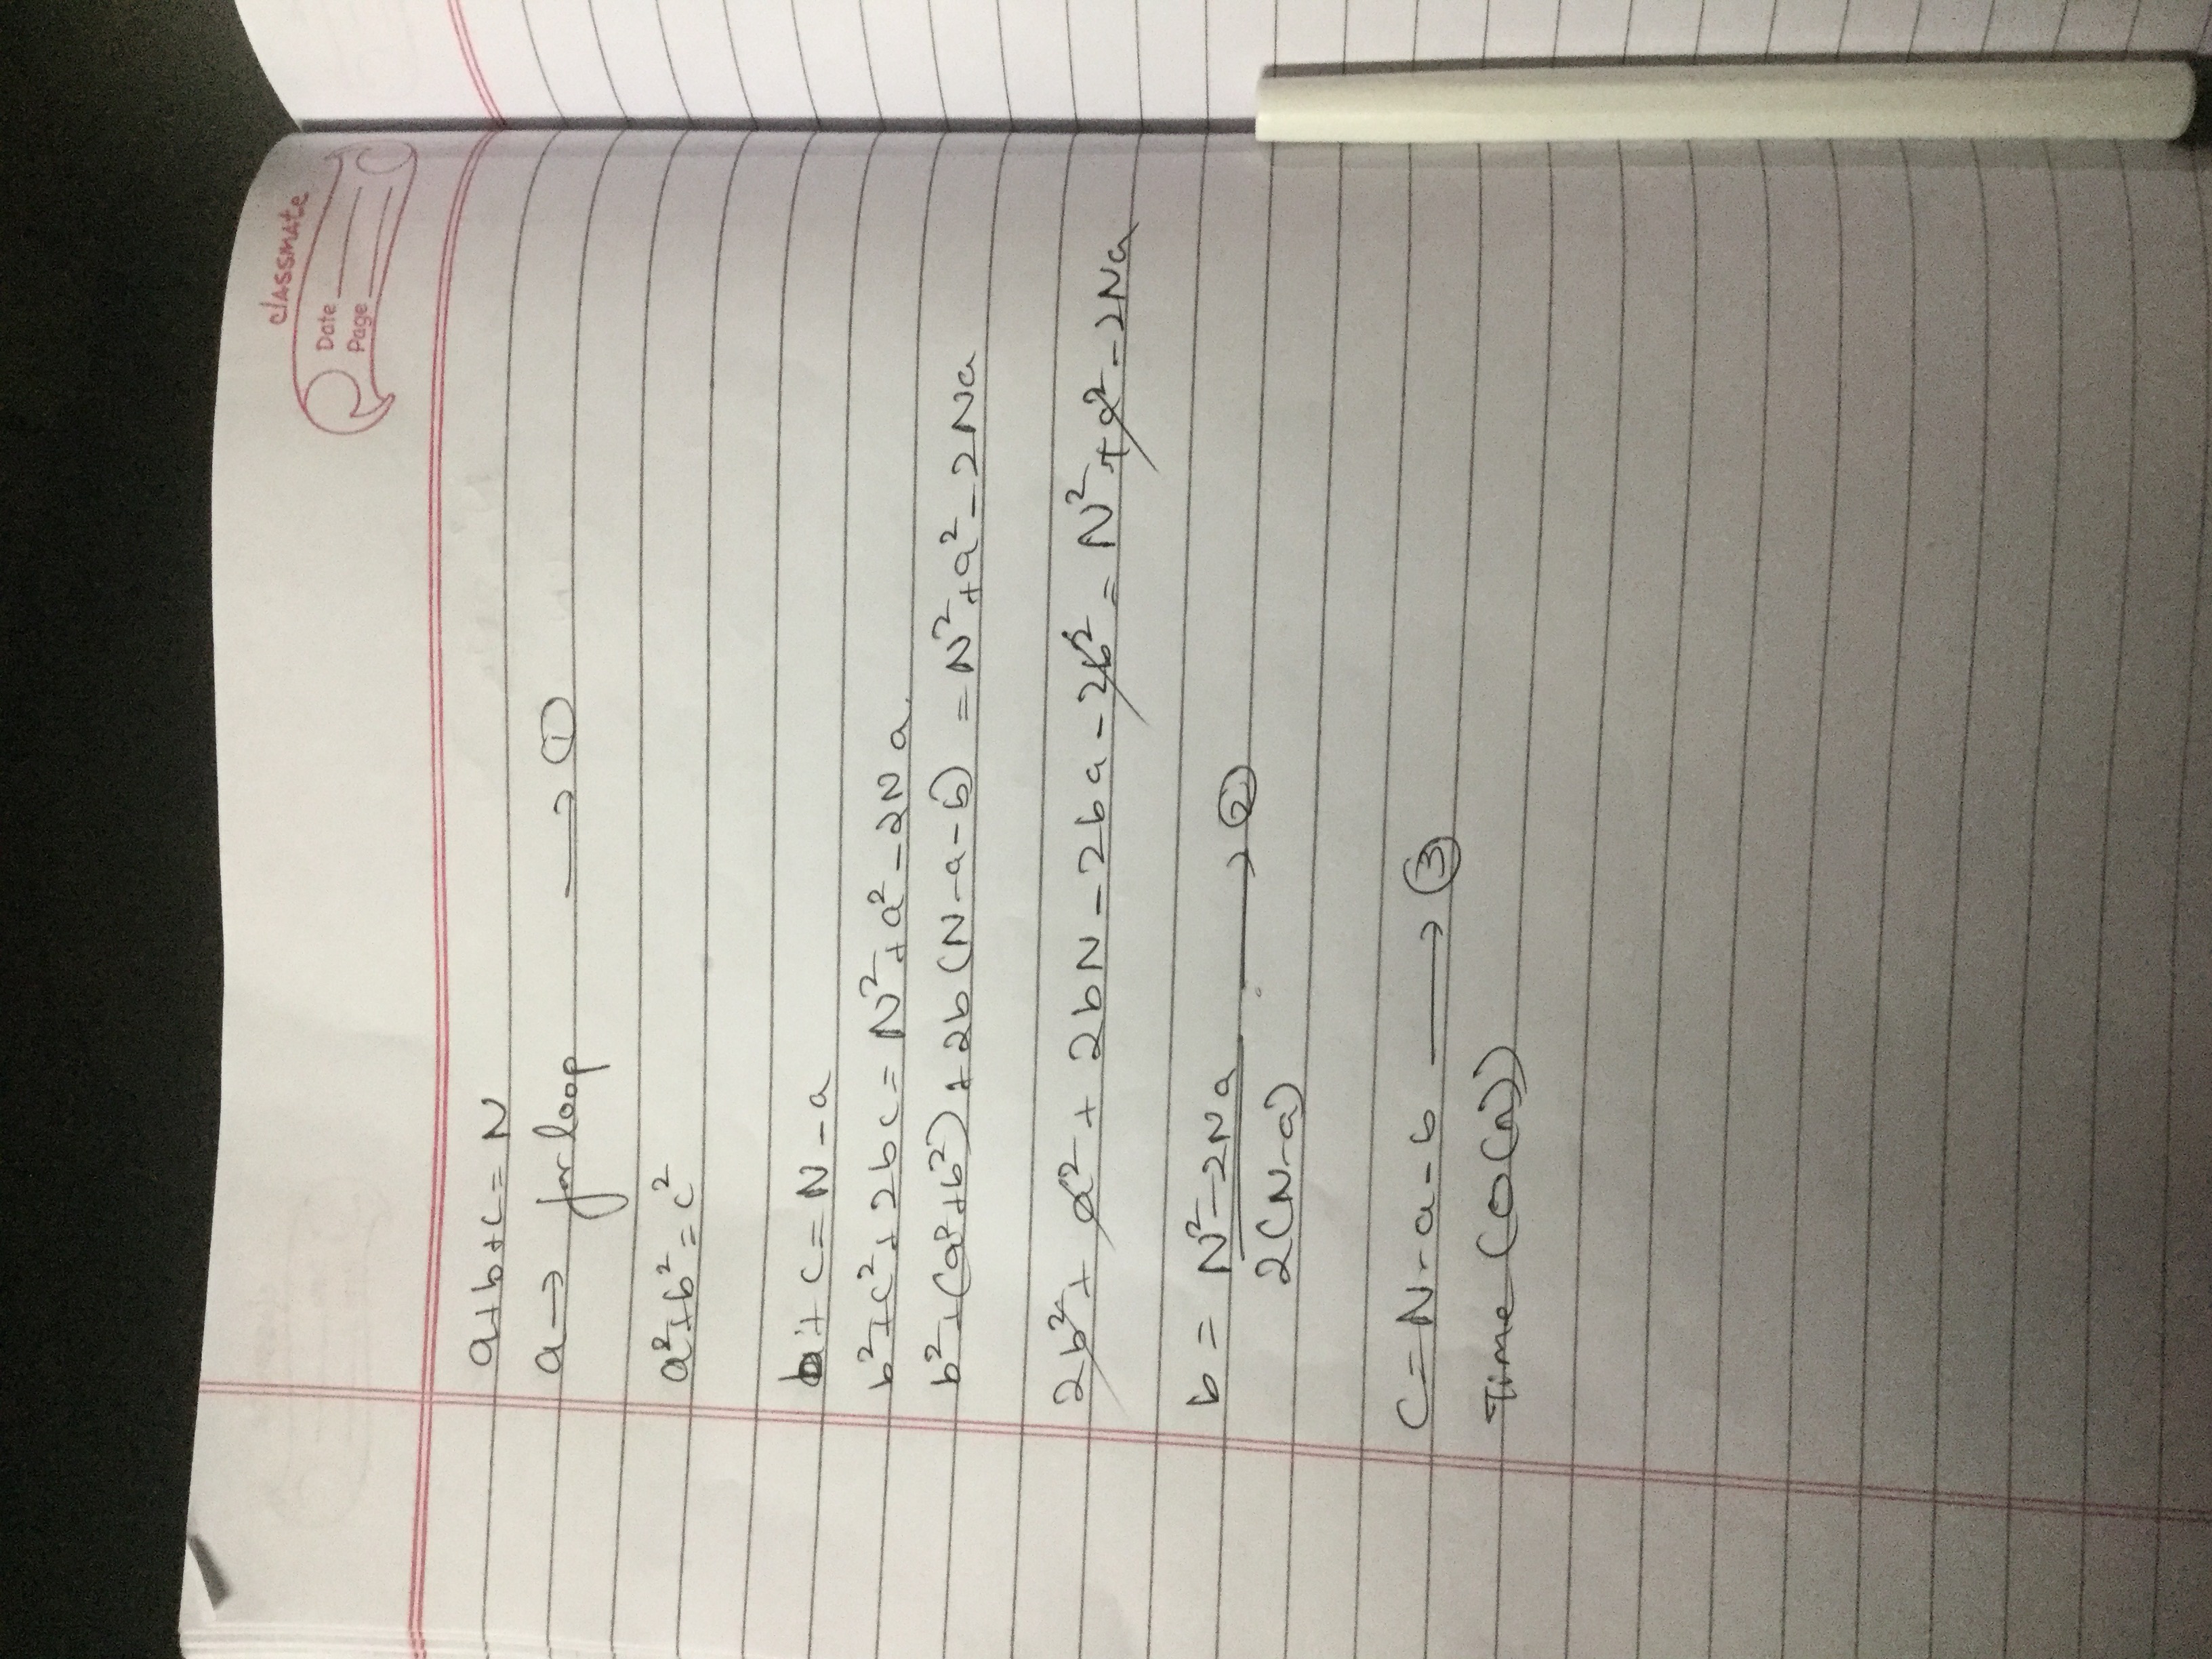 classmate
Date
Page
a+b+c = N
a → for loop → ①
a²+b² = c²
b + c = N - a
b²+c²+2bc = N²+a²-2Na.
b²+(a²+b²)+2b(N-a-b) = N²+a²-2Na
2b²+ a² + 2bN - 2ba - 2b² = N²+a²-2Na
b = N²-2Na → ②
2(N-a)
c = N-a-b → ③
Time (O(n))